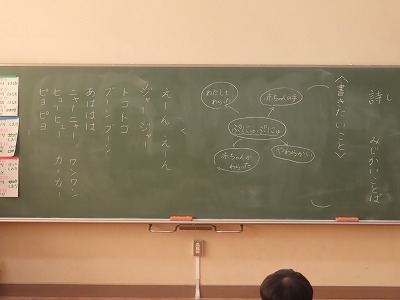 詩し
みじかいことば
〈書きたいこと〉
赤ちゃんの手
わたしも
わらった
ぷにゅぷにゅ
やわらかい
赤ちゃんが
わらった
えーん えーん
ジャー ジャー
トコトコ
ブーン ブーン
あははは
ニャーニャー ワンワン
ヒューヒュー カーカー
ピヨピヨ